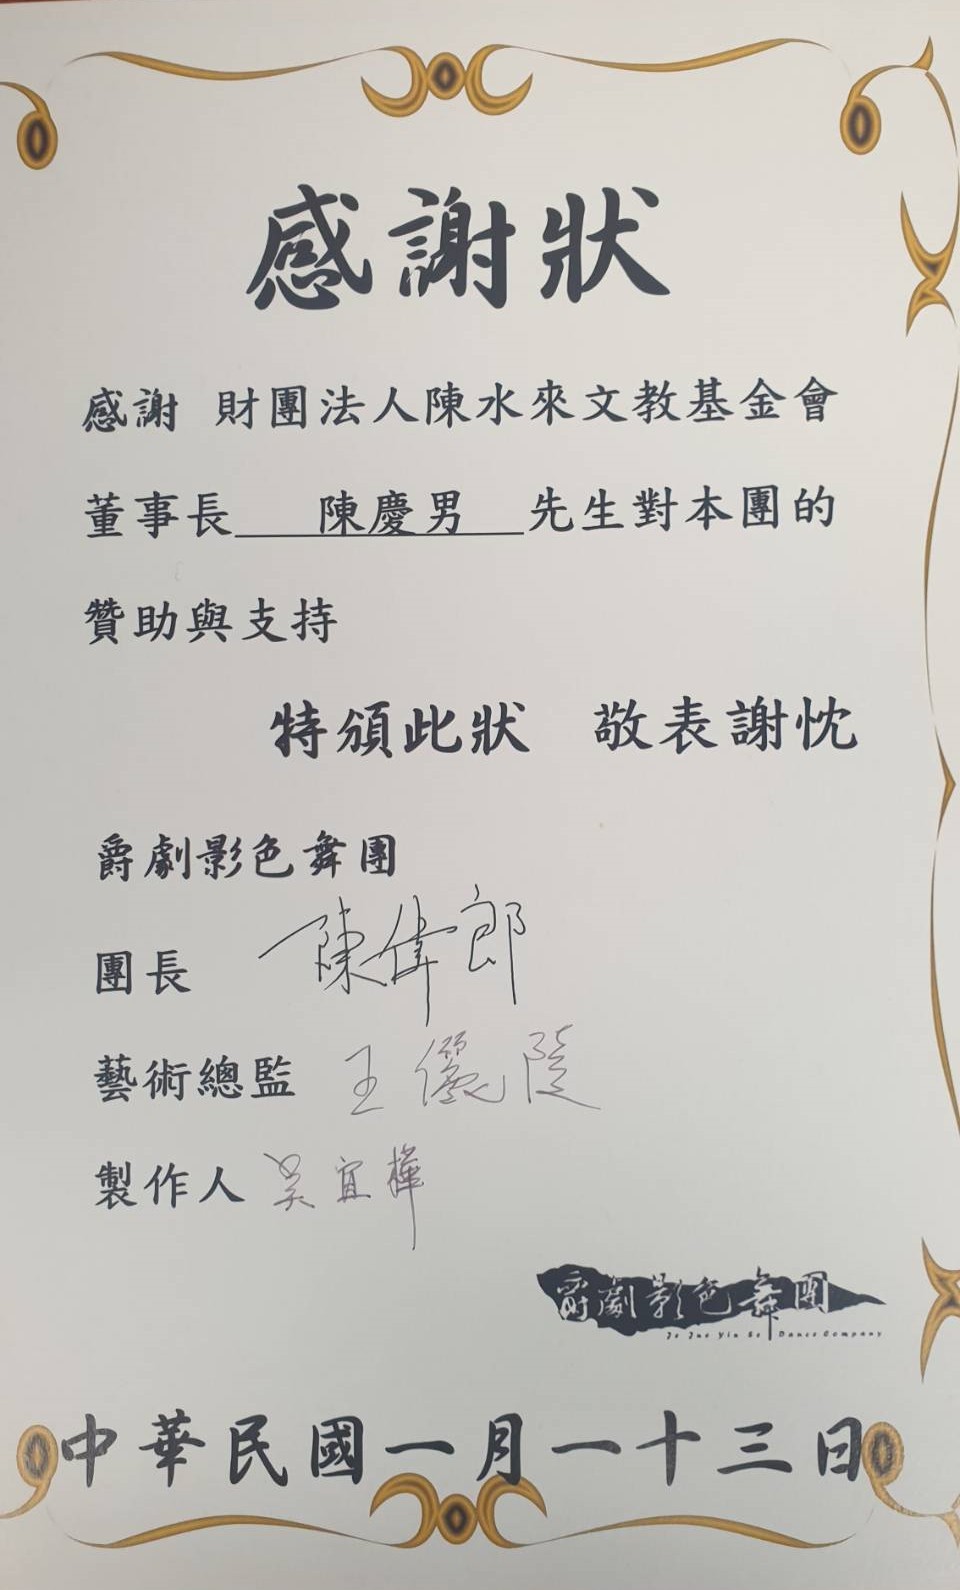 感謝狀
感謝 財團法人陳水來文教基金會
董事長 陳慶男 先生對本團的
贊助與支持
特頒此狀 敬表謝忱
爵劇影色舞團
團長 陳偉郎
藝術總監 王儷陵
製作人 吴宜樺
爵劇影色舞團
Je Jue Yin Se Dance Company
中華民國一月一十三日